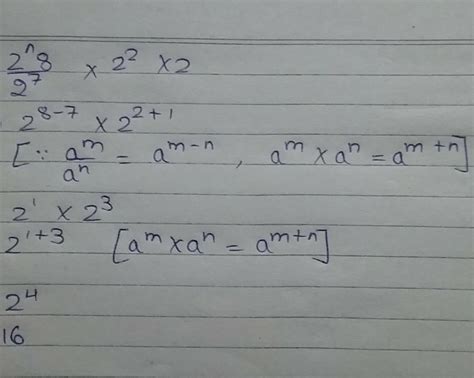 2^8/2^7 × 2² × 2
2^(8-7) × 2^(2+1)
[∵ a^m/a^n = a^(m-n) , a^m × a^n = a^(m+n)]
2^1 × 2^3
2^(1+3) [a^m × a^n = a^(m+n)]
2^4
16